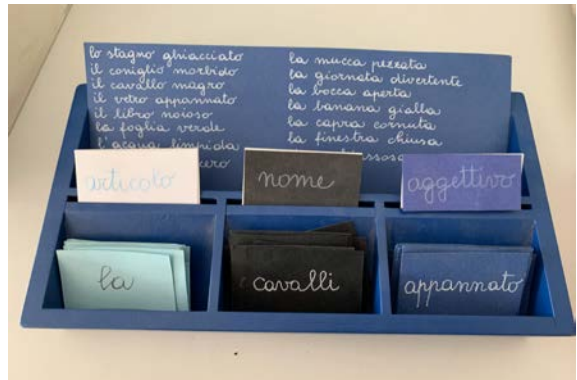 lo stagno ghiacciato
il coniglio morbido
il cavallo magro
il vetro appannato
il libro noioso
la foglia verde
l'acqua limpida
la mucca pezzata
la giornata divertente
la bocca aperta
la banana gialla
la capra cornuta
la finestra chiusa
articolo
nome
aggettivo
la
cavalli
appannato